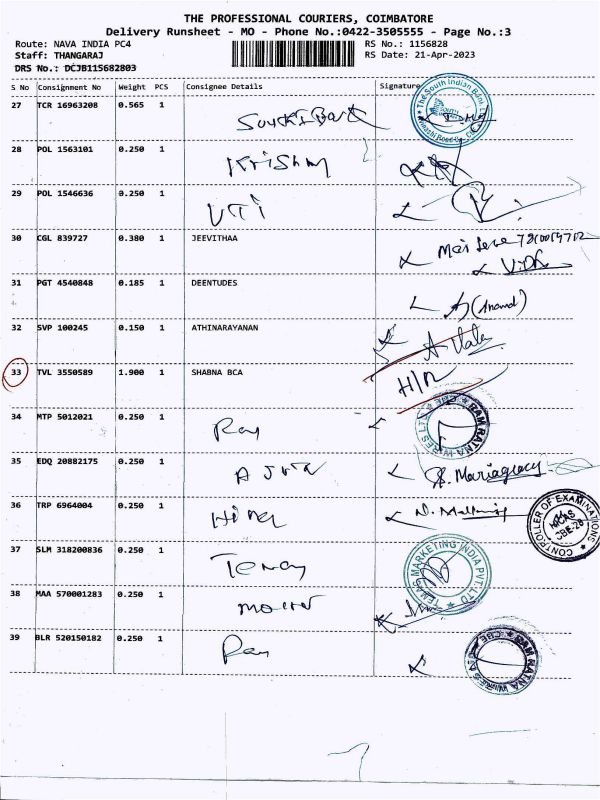 THE PROFESSIONAL COURIERS, COIMBATORE
Delivery Runsheet - MO - Phone No.:0422-3505555 - Page No.:3
Route: NAVA INDIA PC4
RS No.: 1156828
Staff: THANGARAJ
RS Date: 21-Apr-2023
DRS No.: DCJB115682803
S No Consignment No Weight PCS Consignee Details Signature
27 TCR 16963208 0.565 1
The South Indian Bank
28 POL 1563101 0.250 1 Krishna
29 POL 1546636 0.250 1 UTI
30 CGL 839727 0.380 1 JEEVITHAA
31 PGT 4540848 0.185 1 DEENTUDES
(Anand)
32 SVP 100245 0.150 1 ATHINARAYANAN
33 TVL 3550589 1.900 1 SHABNA BCA
34 MTP 5012021 0.250 1 Ram
RAM RATNA WIRES LTD
35 EDQ 20882175 0.250 1
36 TRP 6964004 0.250 1
CONTROLLER OF EXAMINATIONS
CBE-28
37 SLM 318200836 0.250 1
TEMAS MARKETING INDIA PVT. LTD
38 MAA 570001283 0.250 1
39 BLR 520150182 0.250 1 Ram
RAM RATNA WIRES
CBE